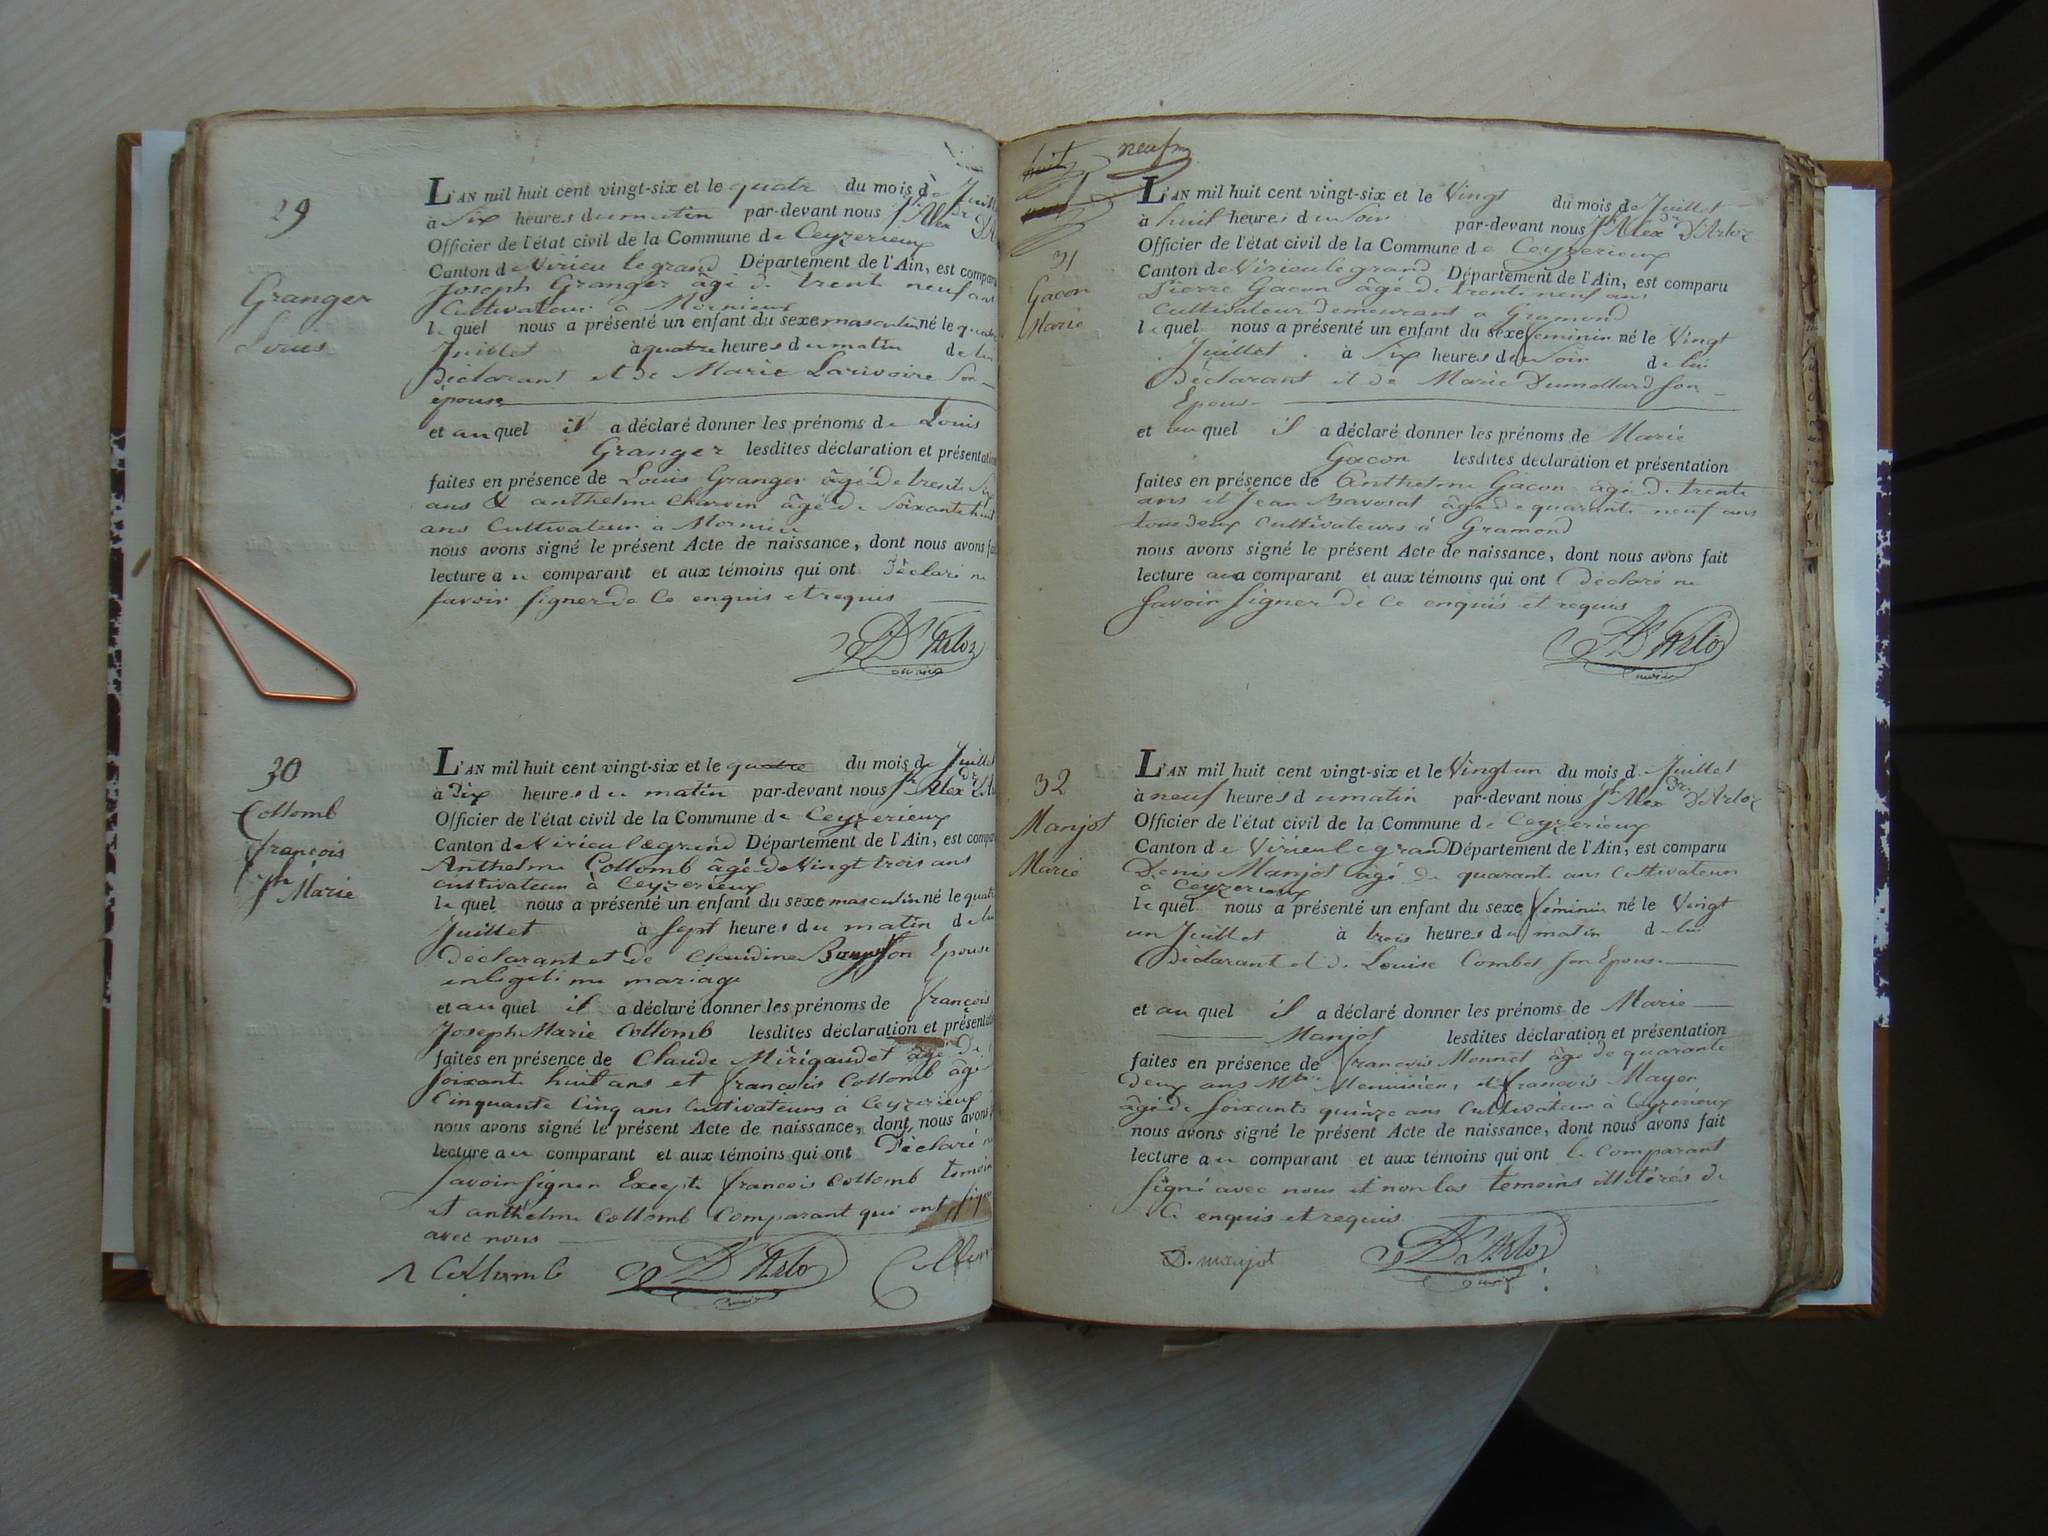 29
Granger
Louis
L'AN mil huit cent vingt-six et le quatre du mois de Juill
à Six heures du matin par-devant nous Jh Alexdre D'Ar
Officier de l'état civil de la Commune de Ceyzerieux
Canton de Virieu le grand Département de l'Ain, est comparu
Joseph Granger âgé de trente neuf ans
Cultivateur à Mornieux
lequel nous a présenté un enfant du sexe masculin né le quatre
Juillet à quatre heures du matin de lui
Déclarant et de Marie Larivoire Son
épouse
et auquel il a déclaré donner les prénoms de Louis
Granger lesdites déclaration et présentation
faites en présence de Louis Granger âgé de trente Six
ans & anthelme Charvin âgé de Soixante huit
ans Cultivateur a Mornieu
nous avons signé le présent Acte de naissance, dont nous avons fait
lecture au comparant et aux témoins qui ont Déclaré ne
Savoir Signer de Ce enquis et requis
D'Arloz
30
Collomb
françois
Jh Marie
L'AN mil huit cent vingt-six et le quatre du mois de Juillet
à Dix heures du matin par-devant nous Jh Alexdre D'A
Officier de l'état civil de la Commune de Ceyzerieux
Canton de Virieu legrand Département de l'Ain, est comparu
Anthelme Collomb âgé de Vingt trois ans
cultivateur à Ceyzerieux
lequel nous a présenté un enfant du sexe masculin né le quatre
Juillet à Sept heures du matin de lui
Déclarant et de Claudine Son Epouse
en légitime mariage
et auquel il a déclaré donner les prénoms de françois
Joseph Marie Collomb lesdites déclaration et présentation
faites en présence de Claude Mirigaudet âgé de
Soixante huit ans et françois Collomb âgé
Cinquante Cinq ans Cultivateurs à Ceyzerieux
nous avons signé le présent Acte de naissance, dont nous avons
lecture au comparant et aux témoins qui ont Déclaré ne
Savoir Signer Excepté françois Collomb temoin
et anthelme Collomb Comparant qui ont signé
avec nous
A Collomb D'Arloz Collomb
huit neuf
31
Gacon
Marie
L'AN mil huit cent vingt-six et le Vingt du mois de Juillet
à huit heures du Soir par-devant nous Jh Alexdre D'Arloz
Officier de l'état civil de la Commune de Ceyzerieux
Canton de Virieu le grand Département de l'Ain, est comparu
Pierre Gacon âgé de trente neuf ans
Cultivateur demeurant a Gramond
lequel nous a présenté un enfant du sexe féminin né le Vingt
Juillet à Six heures du Soir de lui
Déclarant et de Marie Dumollard Son
Epouse
et auquel il a déclaré donner les prénoms de Marie
Gacon lesdites déclaration et présentation
faites en présence de Anthelme Gacon âgé de trente
ans et Jean Bavosat âgé de quarante neuf ans
tous deux Cultivateurs à Gramond
nous avons signé le présent Acte de naissance, dont nous avons fait
lecture au comparant et aux témoins qui ont Déclaré ne
Savoir Signer de Ce enquis et requis
D'Arloz
32
Manjot
Marie
L'AN mil huit cent vingt-six et le Vingt un du mois de Juillet
à neuf heures du matin par-devant nous Jh Alexdre D'Arloz
Officier de l'état civil de la Commune de Ceyzerieux
Canton de Virieu le grand Département de l'Ain, est comparu
Denis Manjot âgé de quarante ans Cultivateur
à Ceyzerieux
lequel nous a présenté un enfant du sexe féminin né le Vingt
un Juillet à trois heures du matin de lui
Déclarant et de Louise Combet Son Epouse
et auquel il a déclaré donner les prénoms de Marie
Manjot lesdites déclaration et présentation
faites en présence de françois Monnet âgé de quarante
Deux ans Menuisier, et françois Mayer
âgé de Soixante quinze ans Cultivateur à Ceyzerieux
nous avons signé le présent Acte de naissance, dont nous avons fait
lecture au comparant et aux témoins qui ont le Comparant
Signé avec nous et non les temoins illitérés de
Ce enquis et requis
D. manjot D'Arloz